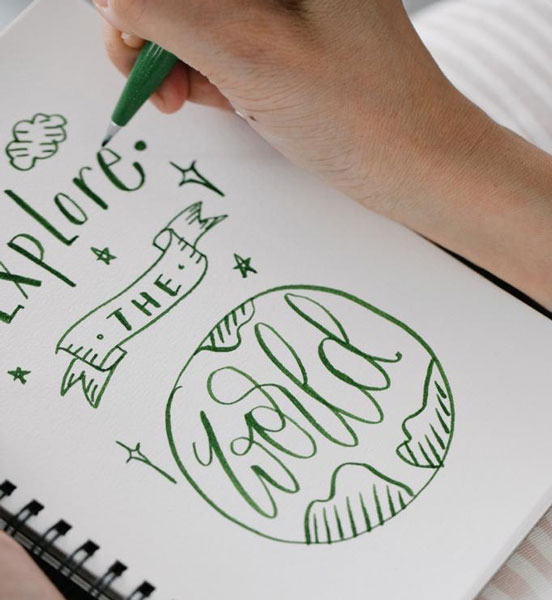 Explore·
·THE·
World